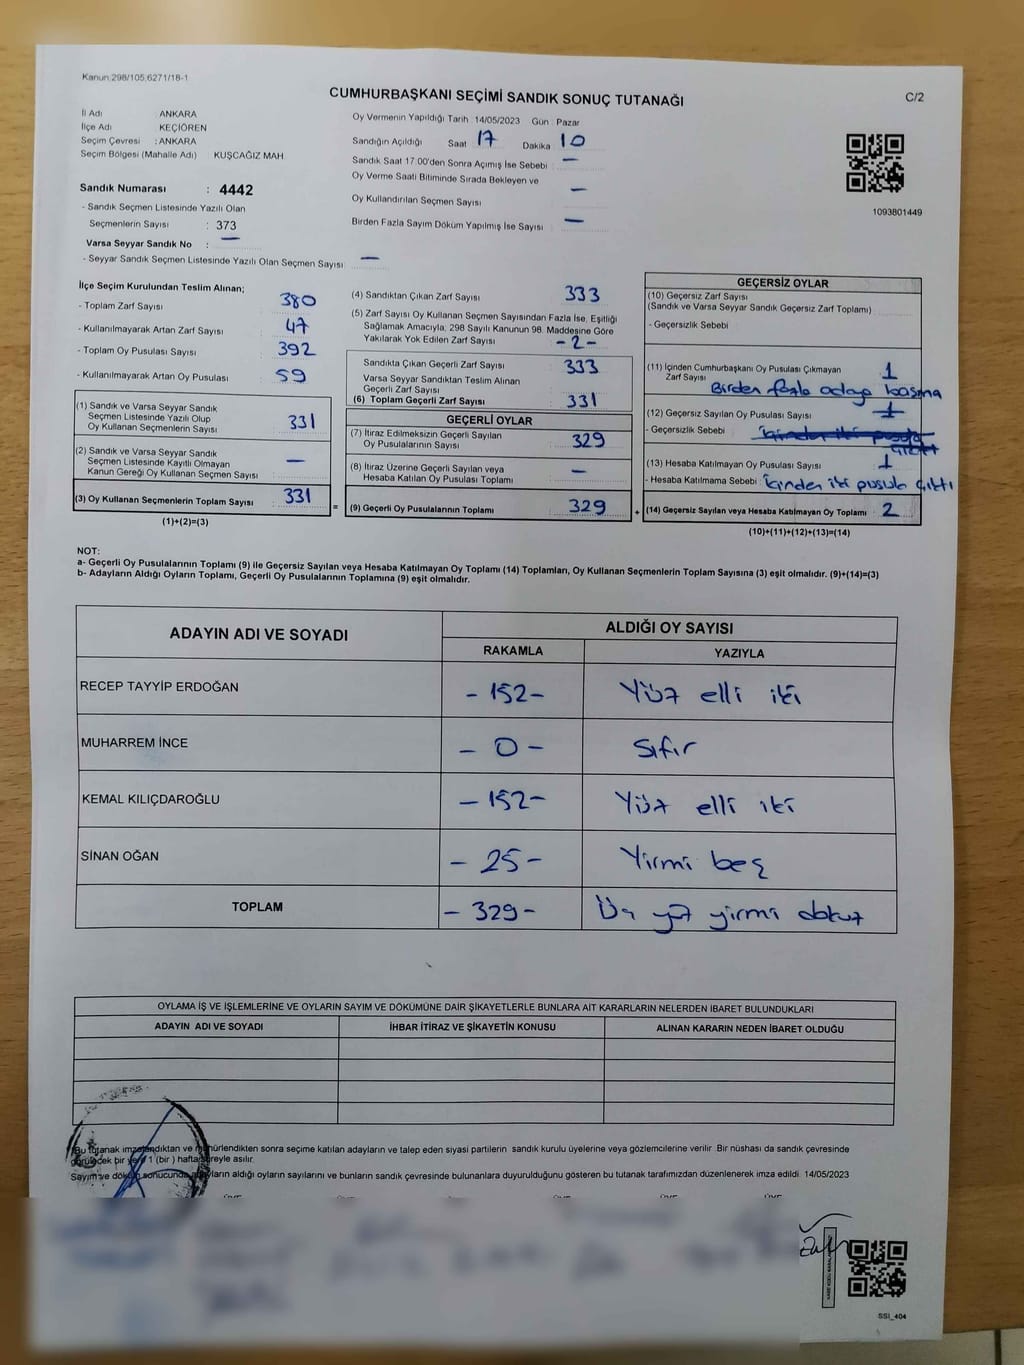 Kanun:298/105,6271/18-1
CUMHURBAŞKANI SEÇİMİ SANDIK SONUÇ TUTANAĞI
C/2
İl Adı ANKARA
İlçe Adı KEÇİÖREN
Seçim Çevresi : ANKARA
Seçim Bölgesi (Mahalle Adı) KUŞCAĞIZ MAH
Sandık Numarası : 4442
- Sandık Seçmen Listesinde Yazılı Olan
Seçmenlerin Sayısı : 373
Varsa Seyyar Sandık No : —
- Seyyar Sandık Seçmen Listesinde Yazılı Olan Seçmen Sayısı —
Oy Vermenin Yapıldığı Tarih : 14/05/2023 Gün : Pazar
Sandığın Açıldığı Saat 17 Dakika 10
Sandık Saat 17:00'den Sonra Açımış İse Sebebi : —
Oy Verme Saati Bitiminde Sırada Bekleyen ve
Oy Kullandırılan Seçmen Sayısı —
Birden Fazla Sayım Döküm Yapılmış İse Sayısı —
1093801449
İlçe Seçim Kurulundan Teslim Alınan;
- Toplam Zarf Sayısı 380
- Kullanılmayarak Artan Zarf Sayısı 47
- Toplam Oy Pusulası Sayısı 392
- Kullanılmayarak Artan Oy Pusulası 59
(1) Sandık ve Varsa Seyyar Sandık
Seçmen Listesinde Yazılı Olup
Oy Kullanan Seçmenlerin Sayısı 331
(2) Sandık ve Varsa Seyyar Sandık
Seçmen Listesinde Kayıtlı Olmayan
Kanun Gereği Oy Kullanan Seçmen Sayısı —
(3) Oy Kullanan Seçmenlerin Toplam Sayısı 331
(1)+(2)=(3)
=
(4) Sandıktan Çıkan Zarf Sayısı 333
(5) Zarf Sayısı Oy Kullanan Seçmen Sayısından Fazla İse, Eşitliği
Sağlamak Amacıyla; 298 Sayılı Kanunun 98. Maddesine Göre
Yakılarak Yok Edilen Zarf Sayısı -2-
Sandıkta Çıkan Geçerli Zarf Sayısı 333
Varsa Seyyar Sandıktan Teslim Alınan
Geçerli Zarf Sayısı
(6) Toplam Geçerli Zarf Sayısı 331
GEÇERLİ OYLAR
(7) İtiraz Edilmeksizin Geçerli Sayılan
Oy Pusulasının Sayısı 329
(8) İtiraz Üzerine Geçerli Sayılan veya
Hesaba Katılan Oy Pusulası Toplamı —
(9) Geçerli Oy Pusulalarının Toplamı 329
+
GEÇERSİZ OYLAR
(10) Geçersiz Zarf Sayısı
(Sandık ve Varsa Seyyar Sandık Geçersiz Zarf Toplamı)
- Geçersizlik Sebebi
(11) İçinden Cumhurbaşkanı Oy Pusulası Çıkmayan
Zarf Sayısı 1
Birden fazla adaya basma
(12) Geçersiz Sayılan Oy Pusulası Sayısı 1
- Geçersizlik Sebebi
(13) Hesaba Katılmayan Oy Pusulası Sayısı 1
- Hesaba Katılmama Sebebi İçinden iki pusula çıktı
(14) Geçersiz Sayılan veya Hesaba Katılmayan Oy Toplamı 2
(10)+(11)+(12)+(13)=(14)
NOT:
a- Geçerli Oy Pusulalarının Toplamı (9) ile Geçersiz Sayılan veya Hesaba Katılmayan Oy Toplamı (14) Toplamları, Oy Kullanan Seçmenlerin Toplam Sayısına (3) eşit olmalıdır. (9)+(14)=(3)
b- Adayların Aldığı Oyların Toplamı, Geçerli Oy Pusulalarının Toplamına (9) eşit olmalıdır.
ADAYIN ADI VE SOYADI ALDIĞI OY SAYISI
RAKAMLA YAZIYLA
RECEP TAYYİP ERDOĞAN -152- Yüz elli iki
MUHARREM İNCE - 0 - Sıfır
KEMAL KILIÇDAROĞLU -152- Yüz elli iki
SİNAN OĞAN - 25 - Yirmi beş
TOPLAM - 329 - Üç yüz yirmi dokuz
OYLAMA İŞ VE İŞLEMLERİNE VE OYLARIN SAYIM VE DÖKÜMÜNE DAİR ŞİKAYETLERLE BUNLARA AİT KARARLARIN NELERDEN İBARET BULUNDUKLARI
ADAYIN ADI VE SOYADI İHBAR İTİRAZ VE ŞİKAYETİN KONUSU ALINAN KARARIN NEDEN İBARET OLDUĞU
Bu tutanak imzalandıktan ve mühürlendikten sonra seçime katılan adayların ve talep eden siyasi partilerin sandık kurulu üyelerine veya gözlemcilerine verilir. Bir nüshası da sandık çevresinde
görülecek bir yere 1 (bir ) hafta süreyle asılır.
Sayım ve döküm sonucunda adayların aldığı oyların sayılarını ve bunların sandık çevresinde bulunanlara duyurulduğunu gösteren bu tutanak tarafımızdan düzenlenerek imza edildi. 14/05/2023
SSI_404